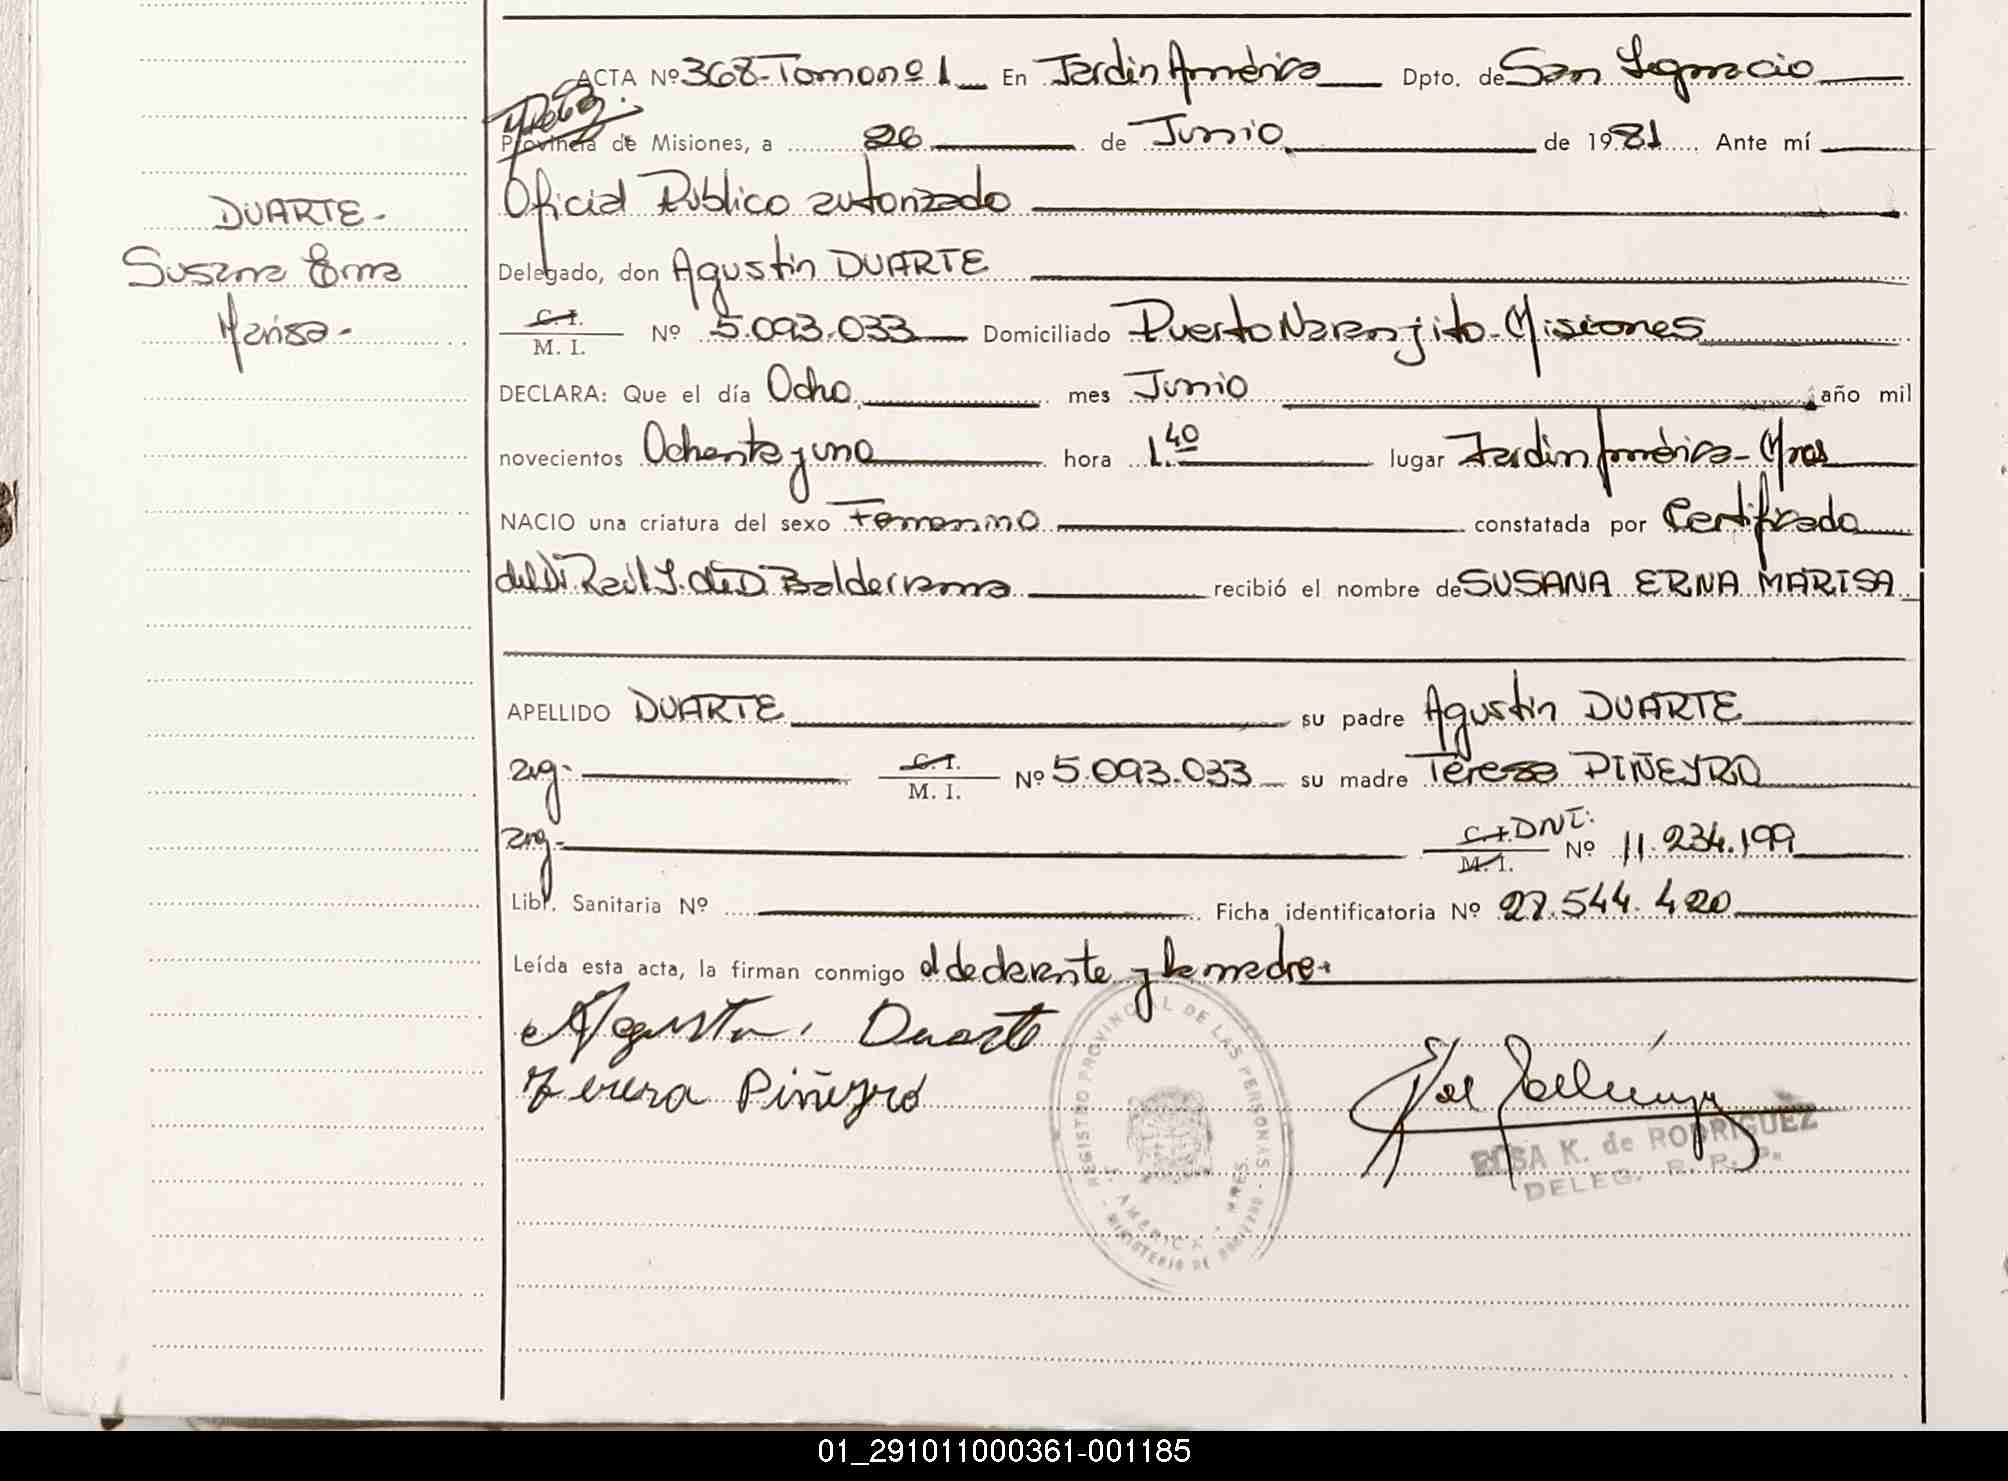 ACTA Nº 368-Tomo nº 1 En Jardin América Dpto. de San Ignacio
Provincia de Misiones, a 26 de Junio de 1981 Ante mí
DUARTE-
Oficial Público autorizado
Susana Erna
Delegado, don Agustin DUARTE
Marisa-
C. I.
M. I. Nº 5.093.033 Domiciliado Puerto Naranjito-Misiones
DECLARA: Que el día Ocho mes Junio año mil
novecientos Ochenta y uno hora 1.40 lugar Jardin América-Mnes
NACIO una criatura del sexo Femenino constatada por Certificado
del Dr Raúl Balderrama recibió el nombre de SUSANA ERNA MARISA
APELLIDO DUARTE su padre Agustin DUARTE
arg- C. I.
M. I. Nº 5.093.033 su madre Teresa PIÑEYRO
arg- C. I. DNI:
M. I. Nº 11.234.199
Libr. Sanitaria Nº Ficha identificatoria Nº 27.544.420
Leída esta acta, la firman conmigo el declarante y la madre.
Agustin Duarte
Teresa Piñeyro
REGISTRO PROVINCIAL DE LAS PERSONAS
AMERICA MNES.
MINISTERIO DE
ROSA K. de RODRIGUEZ
DELEG. R. P. P.
01_291011000361-001185